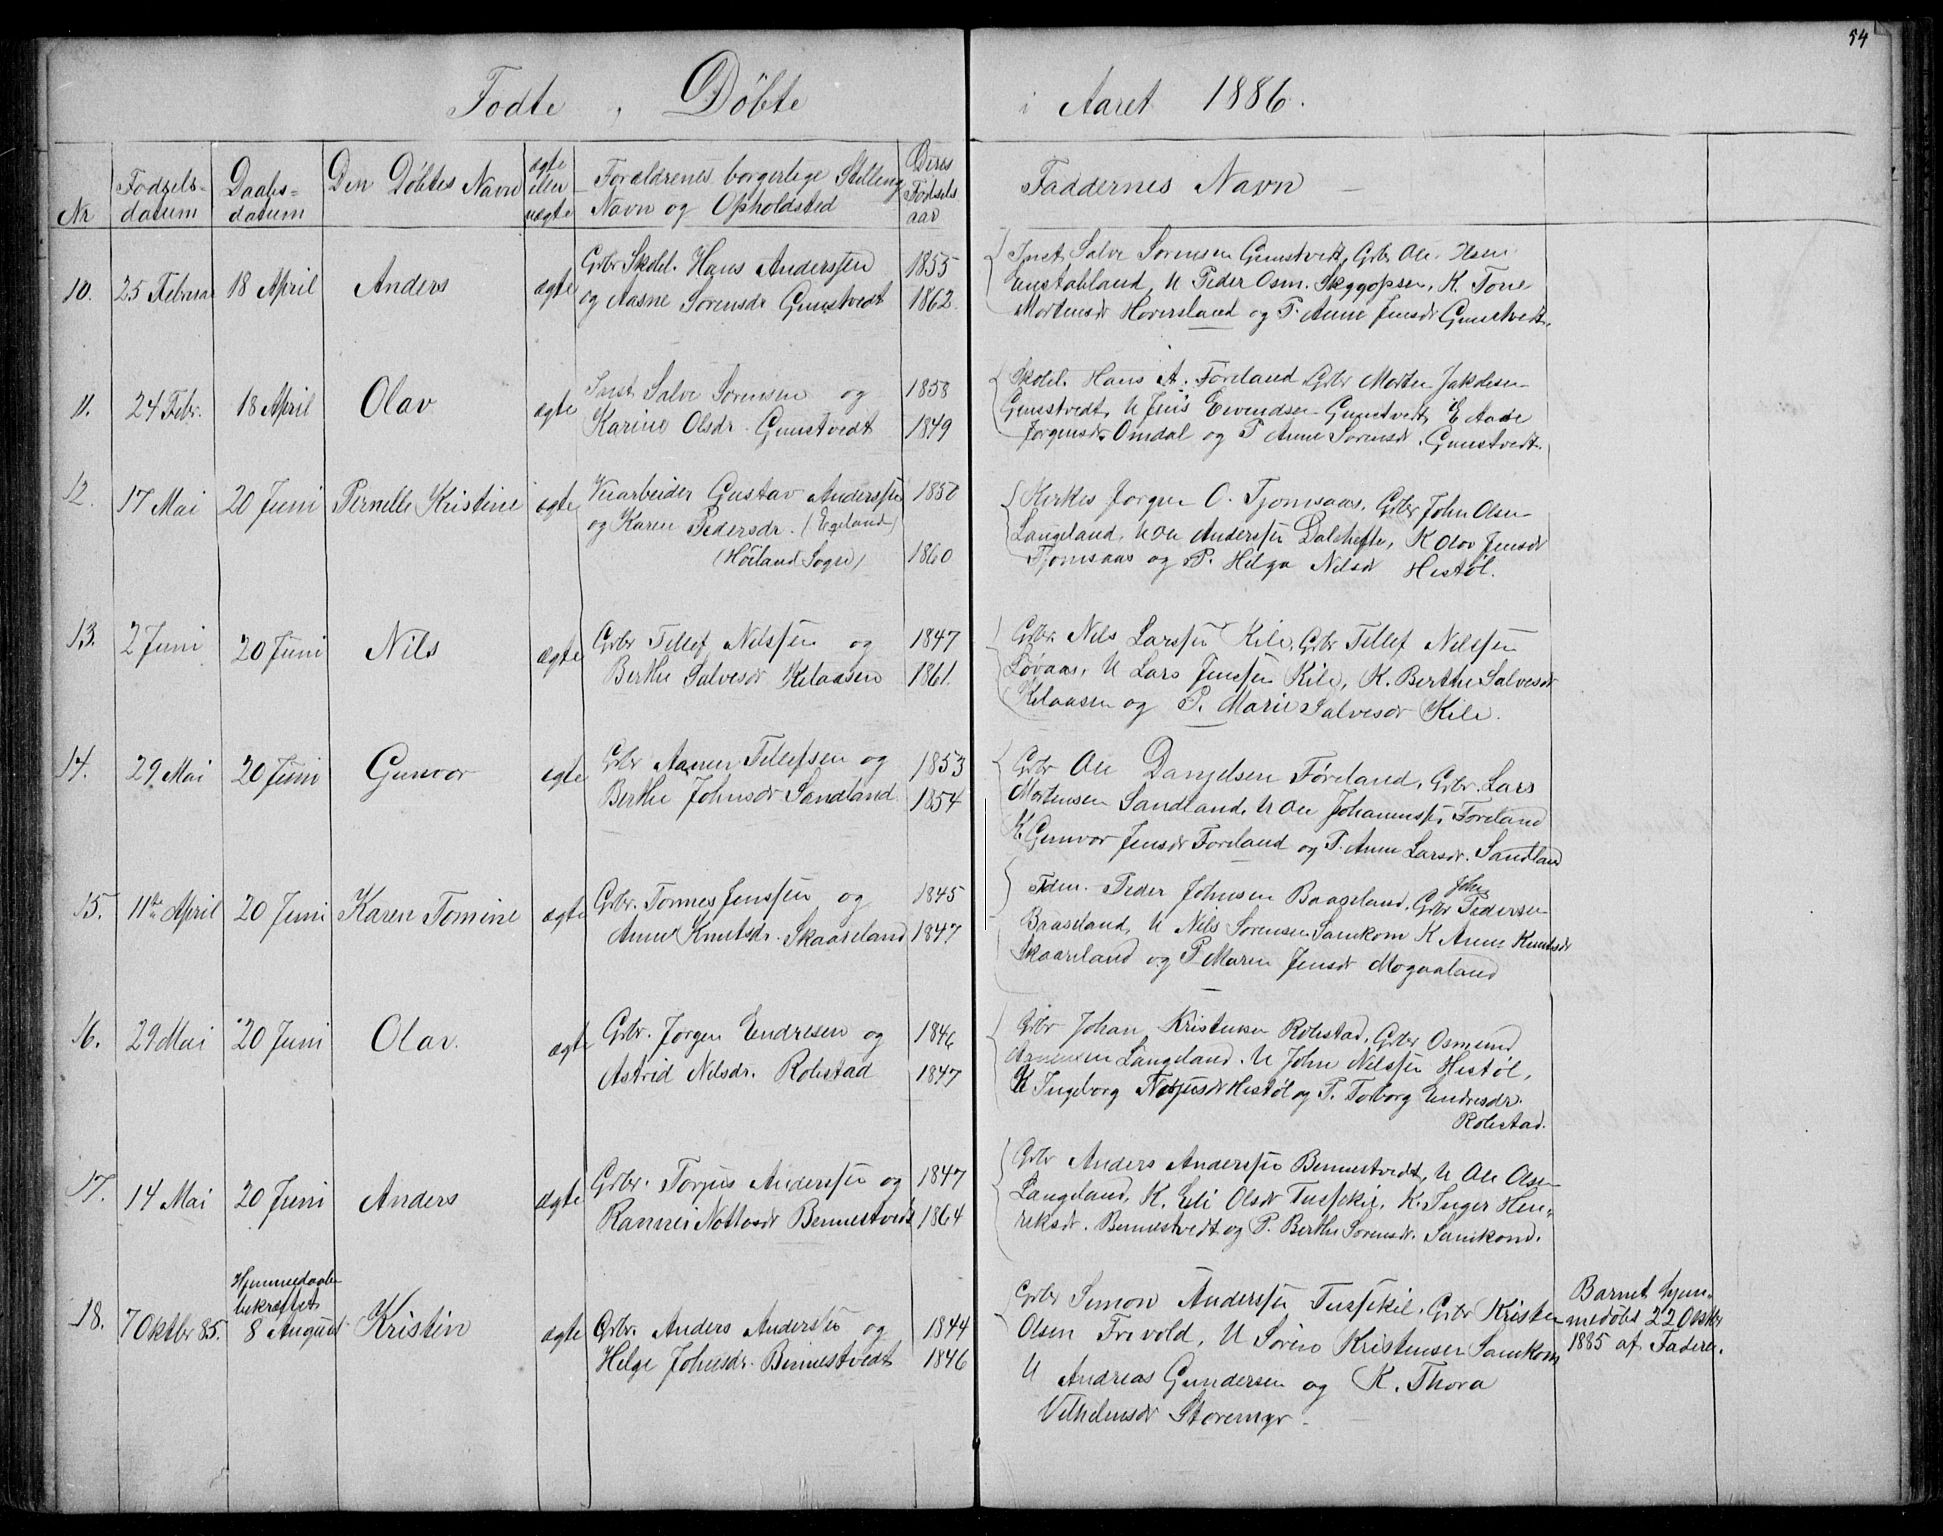 54
Fødte , Døbte i Aaret 1886.
Nr
Fødsels-
datum
Daabs-
datum
Den Døbtes Navn
ægte
eller
uægte
Forældrenes borgerlige Stilling
Navn og Opholdsted
Deres
Fødsels
aar
Faddernes Navn
10. 25 Februar 18 April Anders ægte
Grbr Skolel. Hans Anderssen 1855
og Aasne Sørensdr Gumstvedt 1862.
Inst. Salve Sørensen Gumstvedt, Grbr Ole Olsen
Eustabland, U Peder Osm. K. Tone
Mortensdr Hoversland og P. Anne Jensdr Gumstvedt.
11. 24 Febr. 18 April Olav ægte
Inst Salve Sørensen og 1858
Karine Olsdr. Gumstvedt 1849
Skolel. Hans A. Føreland, Grbr Morten Jakobsen
Gumstvedt, U Jens Eivendsen Gumstvedt, E Aade
Jørgensdr Omdal og P Anne Sørensdr. Gumstvedt.
12. 17 Mai 20 Juni Pernelle Kristine ægte
Veiarbeider Gustav Anderssen 1850
og Karen Pedersdr. (Egeland)
(Høiland Sogn) 1860
Kirkes Jørgen O. Tjomsaas, Grbr John Olsen
Langeland, U Ole Anderssen Dalehefte, K Olav Jensdr
Tjomsaas og P. Helga Nilsdr Hestøl.
13. 2 Juni 20 Juni Nils ægte
Grbr Tellef Nilssen og 1847
Berthe Salvesdr Kilaasen 1861.
Grbr. Nils Larssen Kile, Grbr Tellef Nilssen
Løvaas, U Lars Jenssen Kile, K. Berthe Salvesdr
Kilaasen og P. Marie Salvesdr Kile.
14. 29 Mai 20 Juni Gunvor egte
Grbr Aanen Tellefsen og 1853
Berthe Johnsdr Sandland 1854
Grbr Ole Danjelsen Føreland, Grbr. Lars
Mortensen Sandland, U Ole Johannessen Føreland
K. Gunvor Jensdr Føreland og P. Anne Larsdr. Sandland
15. 11te April 20 Juni Karen Tomine ægte
Grbr. Tønnes Jenssen og 1845
Anne Knutsdr. Skaareland 1847
Fdm. Peder Johnsen Baaseland, Grbr John Pedersen
Baaseland, U Nils Sørensen Samkom K Anne Knutsdr
Skaareland og P Maren Jensdr Mogaaland
16. 29 Mai 20 Juni Olav. ægte
Grbr. Jørgen Endresen og 1846
Astrid Nilsdr. Robstad 1847
Grbr Johan Kristensen Robstad, Grbr Osmund
Aanensen Langeland. U John Nilssen Hestøl,
K Ingeborg Torjusdr Hestøl og P. Torborg Endresdr.
Robstad.
17. 14 Mai 20 Juni Anders ægte
Grbr. Torjus Anderssen og 1847
Rannei Nottosdr Bennestvedt 1864
Grbr Anders Anderssen Bennestvedt, U Ole Olsen
Langeland, K. Eli Olsdr Tusfekil, K. Inger Hen-
reksdr. Bennestvedt og P. Berthe Sørensdr. Samkom.
18. 7 Oktbr 85. Hjemmedaaben
bekræftet
8 August Kristin ægte
Grbr. Anders Anderssen og 1844
Helge Johnsdr. Bennestvedt 1846
Grbr Simon Anderssen Tusfekil, Grbr Kristen
Olsen Trivold, U Søren Kristensen Samkom
U Andreas Gundersen og K. Thora
Vilhelmsdr Storemyr.
Barnet hjem-
medøbt 22 Oktbr
1885 af Faderen.